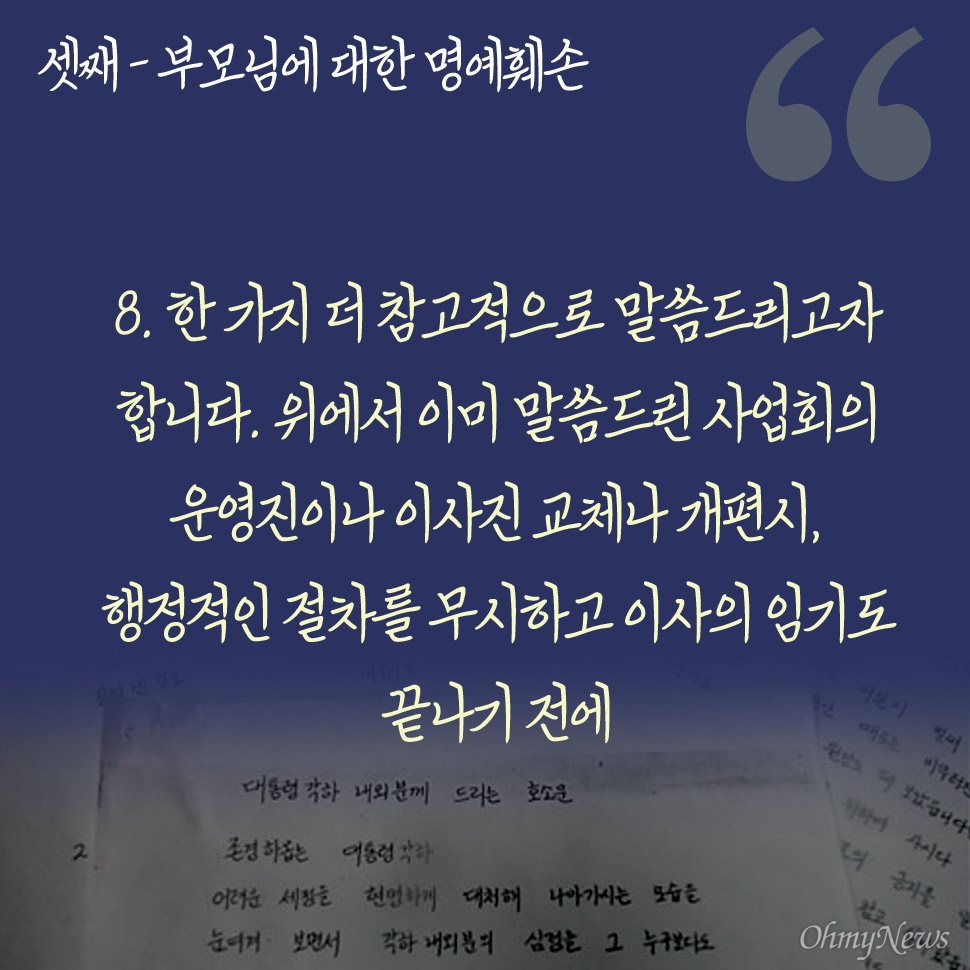 셋째 - 부모님에 대한 명예훼손
8. 한 가지 더 참고적으로 말씀드리고자
합니다. 위에서 이미 말씀드린 사업회의
운영진이나 이사진 교체나 개편시,
행정적인 절차를 무시하고 이사의 임기도
끝나기 전에
대통령 각하 내외분께 드리는 호소문
2 존경하옵는 대통령 각하
어려운 세정을 현명하게 대처해 나아가시는 모습을
눈여겨 보면서 각하 내외분의 심정을 그 누구보다도
OhmyNews